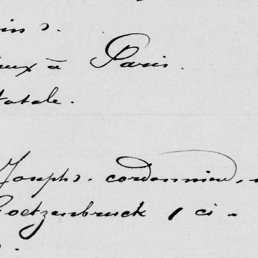 ins).
eux à Paris.
totale.
Joseph), cordonnier,
Goetzenbruck, ci-